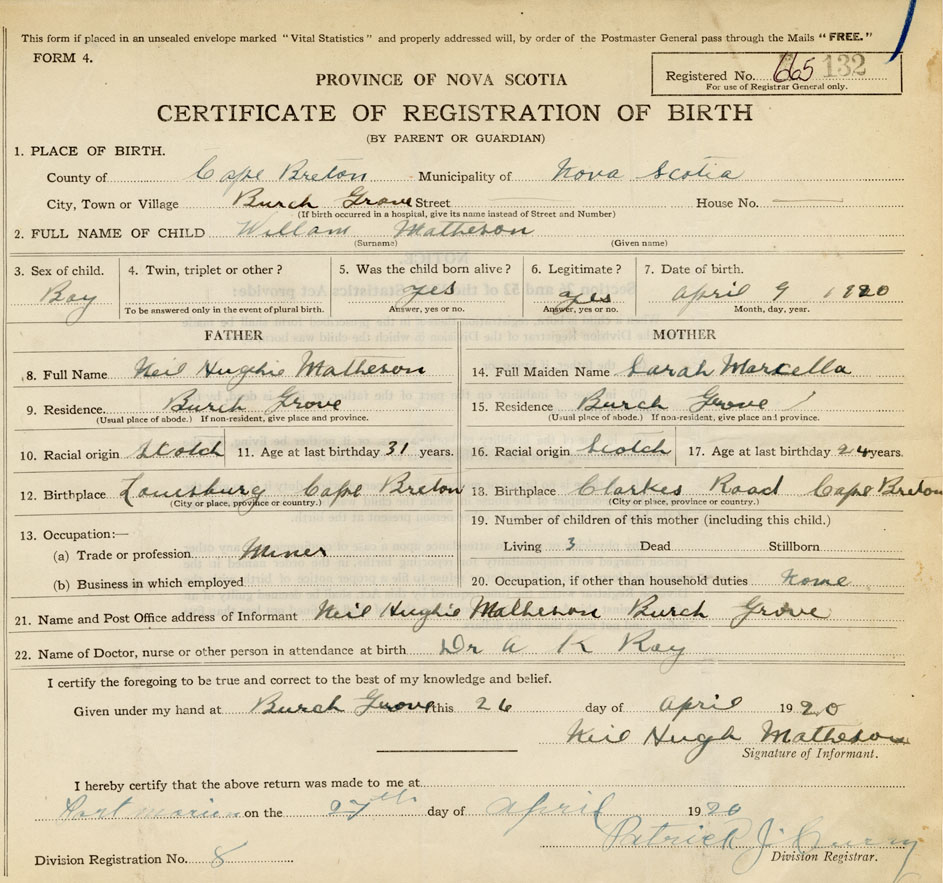 This form if placed in an unsealed envelope marked "Vital Statistics" and properly addressed will, by order of the Postmaster General pass through the Mails "FREE."
FORM 4.
Registered No. 665 132
For use of Registrar General only.
PROVINCE OF NOVA SCOTIA
CERTIFICATE OF REGISTRATION OF BIRTH
(BY PARENT OR GUARDIAN)
1. PLACE OF BIRTH.
County of Cape Breton Municipality of Nova Scotia
City, Town or Village Burch Grove Street House No.
(If birth occurred in a hospital, give its name instead of Street and Number)
2. FULL NAME OF CHILD Willam Matheson
(Surname) (Given name)
3. Sex of child. 4. Twin, triplet or other? 5. Was the child born alive? 6. Legitimate? 7. Date of birth.
Boy yes yes April 9 1920
To be answered only in the event of plural birth. Answer, yes or no. Answer, yes or no. Month, day, year.
FATHER MOTHER
8. Full Name Neil Hughie Matheson 14. Full Maiden Name Sarah Marcella
9. Residence Burch Grove 15. Residence Burch Grove
(Usual place of abode.) If non-resident, give place and province. (Usual place of abode.) If non-resident, give place and province.
10. Racial origin Scotch 11. Age at last birthday 31 years. 16. Racial origin Scotch 17. Age at last birthday 24 years.
12. Birthplace Louisburg Cape Breton 18. Birthplace Clarkes Road Cape Breton
(City or place, province or country.) (City or place, province or country.)
13. Occupation:— 19. Number of children of this mother (including this child.)
(a) Trade or profession Miner Living 3 Dead Stillborn
(b) Business in which employed 20. Occupation, if other than household duties None
21. Name and Post Office address of Informant Neil Hughie Matheson Burch Grove
22. Name of Doctor, nurse or other person in attendance at birth Dr A K Roy
I certify the foregoing to be true and correct to the best of my knowledge and belief.
Given under my hand at Burch Grove this 26 day of April 1920
Neil Hugh Matheson
Signature of Informant.
I hereby certify that the above return was made to me at
Port morien on the 27th day of April 1920
Patrick J.
Division Registrar.
Division Registration No. 8